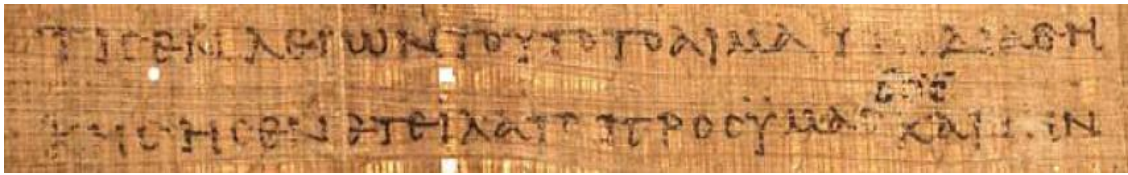 ΤΙϹΕΝ ΛΕΓΩΝ ΤΟΥΤΟ ΤΟ ΑΙΜΑ ΤΗϹ ΔΙΑΘΗ
ΚΗϹ ΗϹ ΕΝΕΤΕΙΛΑΤΟ ΠΡΟϹ ΫΜΑϹ Ο Θ̅Ϲ̅ ΚΑΙ ΤΗΝ